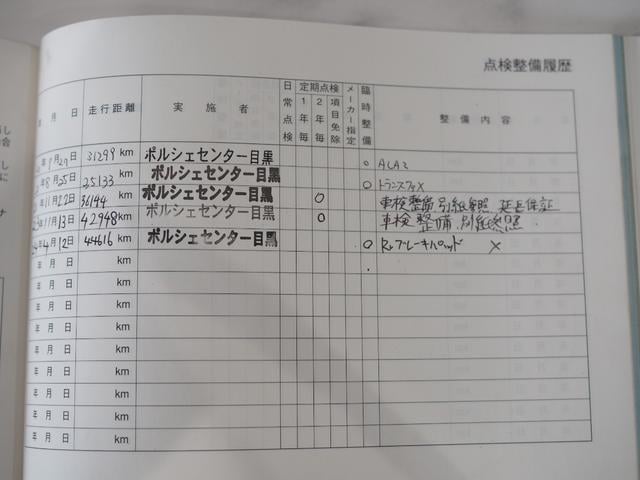 点検整備履歴
年 月 日 走行距離 実施者 日常点検 定期点検 1年毎 2年毎 項目免除 メーカー指定 臨時整備 整備内容
年9月29日 31299 km ポルシェセンター目黒 ○
年8月25日 25133 km ポルシェセンター目黒 ○
年11月22日 36144 km ポルシェセンター目黒 ○ 車検整備 別紙参照 延長保証
年11月13日 42948 km ポルシェセンター目黒 ○ 車検整備 別紙参照
年4月12日 44616 km ポルシェセンター目黒 ○ Rrブレーキパッド ×
年 月 日 km
年 月 日 km
年 月 日 km
年 月 日 km
年 月 日 km
年 月 日 km
年 月 日 km
年 月 日 km
年 月 日 km